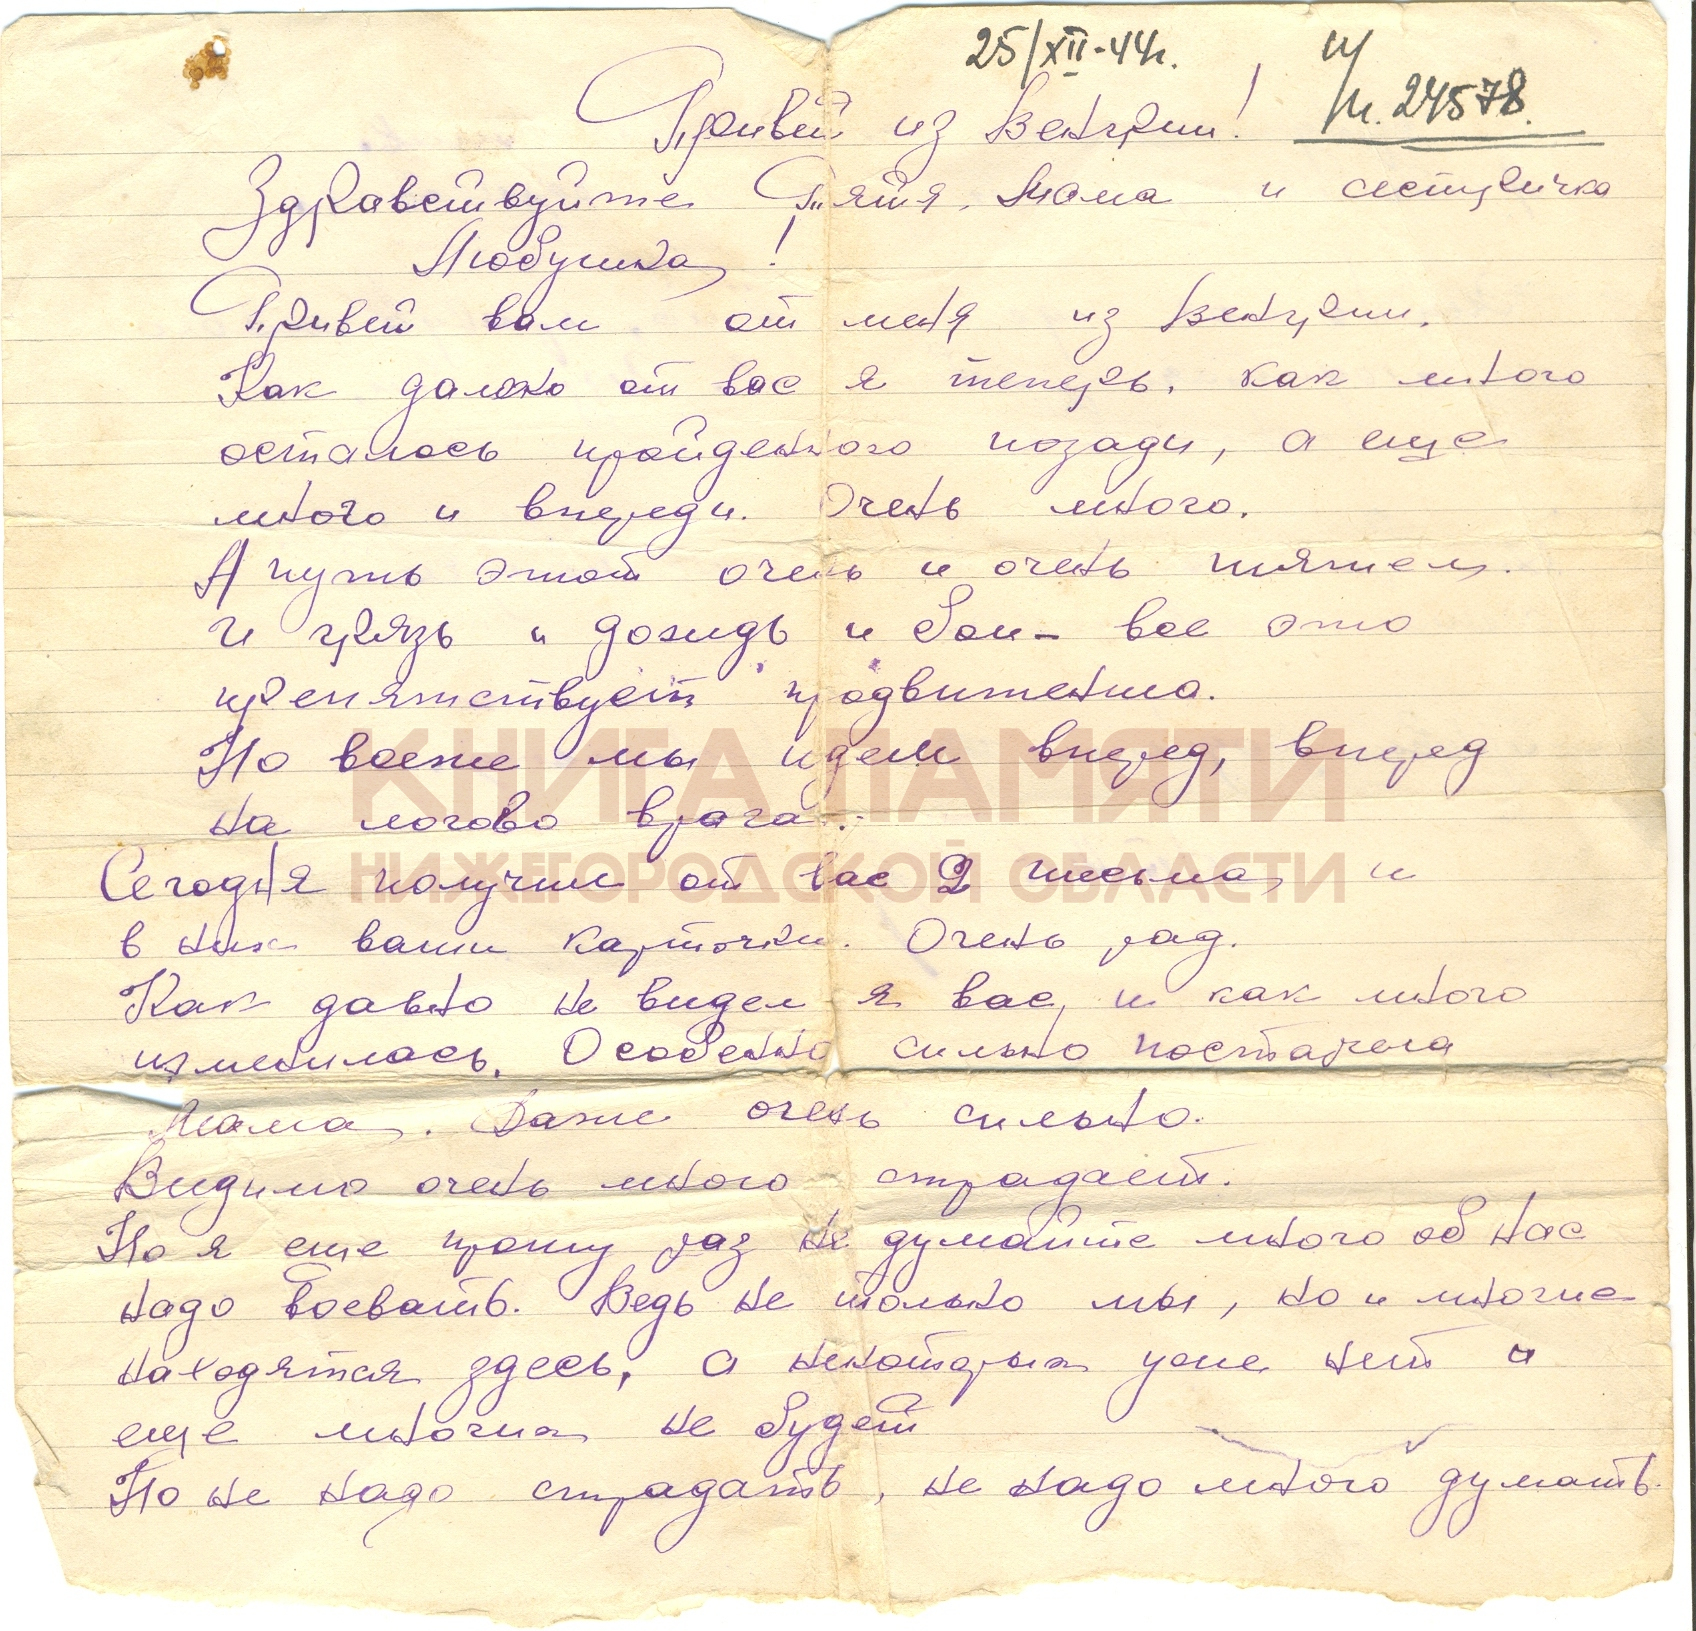 25/XII-44г.
п/
п. 24578.
Привет из Венгрии!
Здравствуйте Тятя, Мама и сестричка
Любушка!
Привет вам от меня из Венгрии.
Как далеко от вас я теперь, как много
осталось пройденного позади, а еще
много и впереди. Очень много.
А путь этот очень и очень тяжел.
И грязь и дождь и бои - все это
препятствует продвижению.
Но всеже мы идем вперед, вперед
на логово врага.
КНИГА ПАМЯТИ
НИЖЕГОРОДСКОЙ ОБЛАСТИ
Сегодня получил от вас 2 письма, и
в них ваши карточки. Очень рад.
Как давно не видел я вас, и как много
изменилось. Особенно сильно постарела
Мама. Даже очень сильно.
Видимо очень много страдает.
Но я еще прошу раз не думайте много об нас
надо воевать. Ведь не только мы, но и многие
находятся здесь, а некоторых уже нет и
еще многих не будет
Но не надо страдать, не надо много думать.